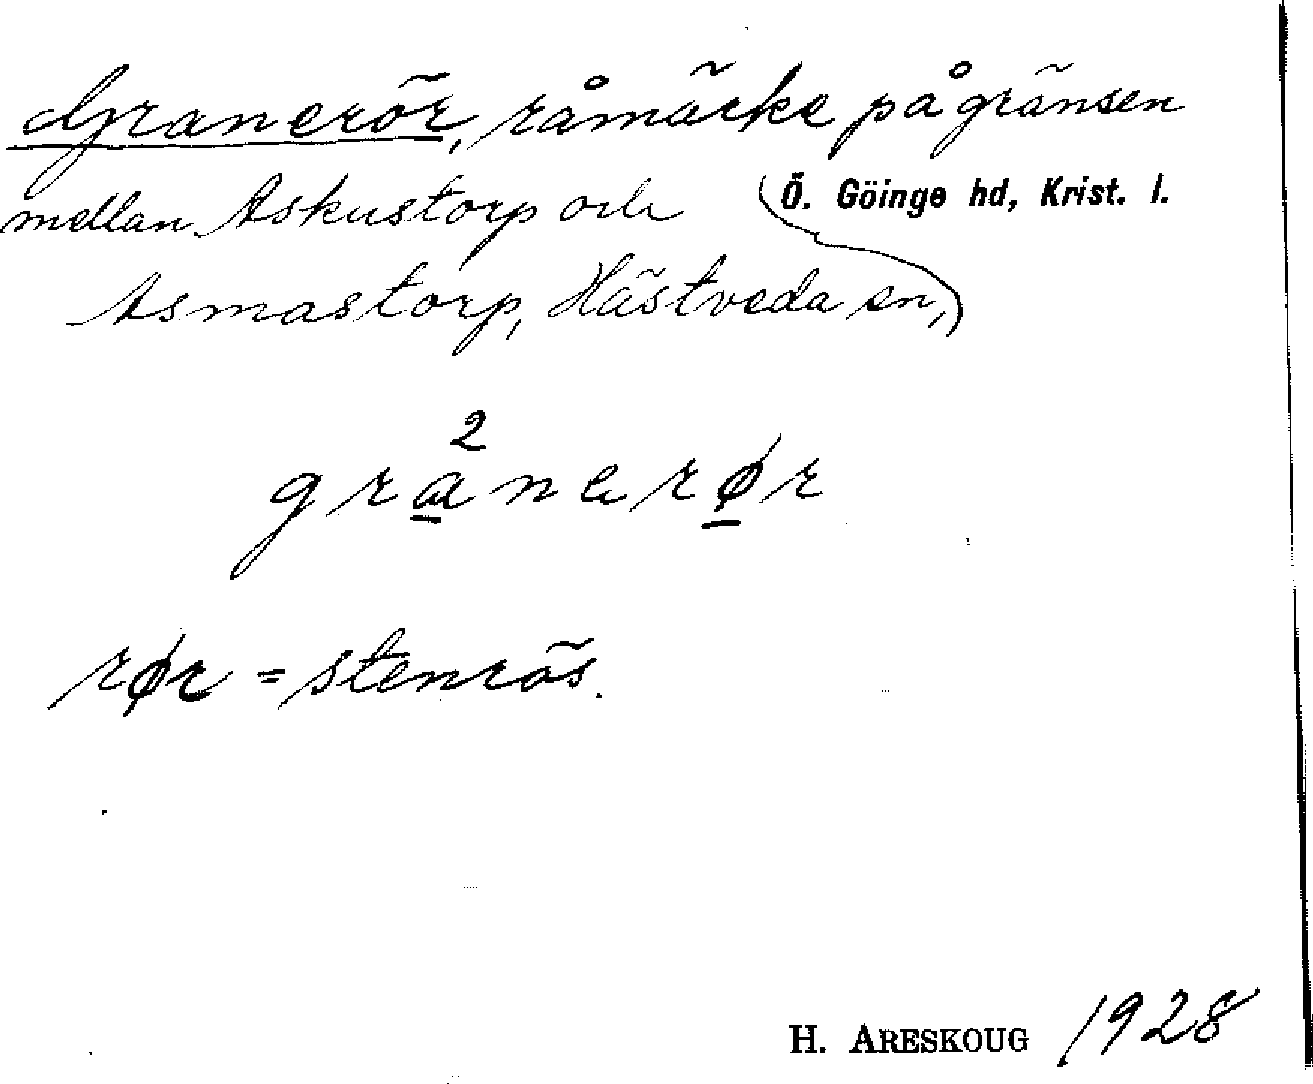 Granerör, råmärke på gränsen
mellan Askustorp och
Ö. Göinge hd, Krist. l.
Asmastorp, Hästveda sn,
2
granerør
rør = stenrös.
H. ARESKOUG 1928